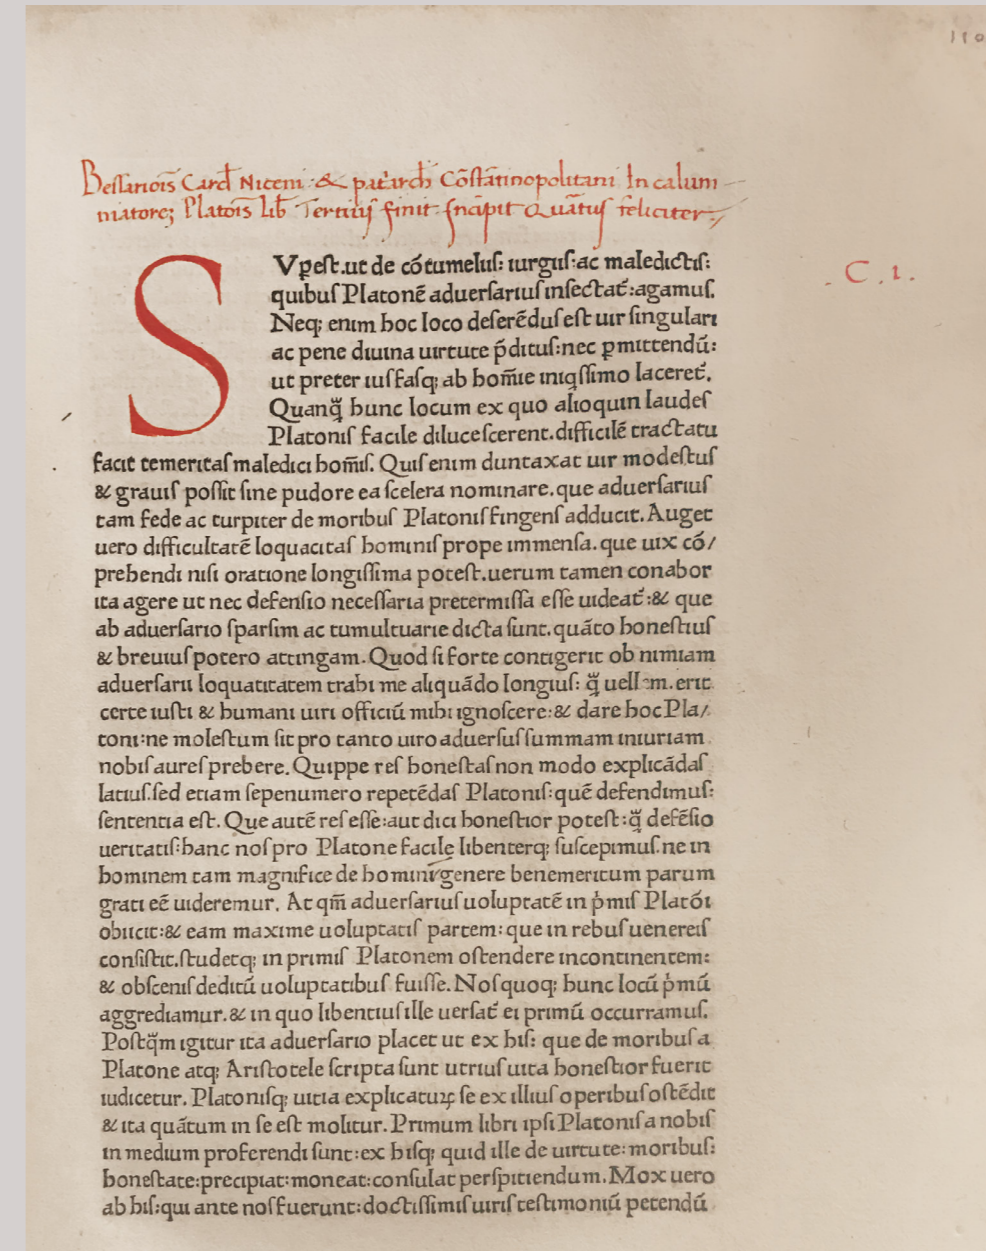 110
Bessariōis Card̄ Niceni & pat̓arch̄ Cōstātinopolitani In calum
niatorez Platōis Lib̄ Tertiꝰ finit Incipit Quātus feliciter
C. 1.
SVꝑest.ut de cōtumeliis: iurgiis:ac maledictis:
quibus Platonē aduersarius insectat̓:agamus.
Neq; enim hoc loco deserēdus est uir singulari
ac pene diuina uirtute p̄ditus:nec ꝑmittendū:
ut preter ius fasq; ab hom̄ie iniqssimo laceret̓.
Quanq̄ hunc locum ex quo alioquin laudes
Platonis facile dilucescerent.difficilē tractatu
facit temeritas maledici hom̄is. Quis enim duntaxat uir modestus
& grauis possit sine pudore ea scelera nominare.que aduersarius
tam fede ac turpiter de moribus Platonis fingens adducit. Auget
uero difficultatē loquacitas hominis prope immensa.que uix cō/
prehendi nisi oratione longissima potest.uerum tamen conabor
ita agere ut nec defensio necessaria pretermissa esse uideat̓:& que
ab aduersario sparsim ac tumultuarie dicta sunt.quāto honestius
& breuius potero attingam. Quod si forte contigerit ob nimiam
aduersarii loquatitatem trahi me aliquādo longius: q̄ uellem.erit
certe iusti & humani uiri officiū mihi ignoscere:& dare hoc Pla/
toni:ne molestum sit pro tanto uiro aduersus summam iniuriam
nobis aures prebere. Quippe res honestas non modo explicādas
latius.sed etiam sepenumero repetēdas Platonis:quē defendimus:
sententia est. Que autē res esse:aut dici honestior potest:q̄ defēsio
ueritatis:hanc nos pro Platone facile libenterq; suscepimus.ne in
hominem tam magnifice de hominū genere benemeritum parum
grati eē uideremur. At qm̄ aduersarius uoluptatē in p̓mis Platōi
obiicit:& eam maxime uoluptatis partem:que in rebus uenereis
consistit.studetq; in primis Platonem ostendere incontinentem:
& obscenis deditū uoluptatibus fuisse. Nos quoq; hunc locū p̓mū
aggrediamur.& in quo libentius ille uersat̓ ei primū occurramus.
Postq̄m igitur ita aduersario placet ut ex his: que de moribus a
Platone atq; Aristotele scripta sunt utrius uita honestior fuerit
iudicetur. Platonisq; uitia explicatuꝝ se ex illius operibus ostēdit
& ita quātum in se est molitur. Primum libri ipsi Platonis a nobis
in medium proferendi sunt:ex hisq; quid ille de uirtute:moribus:
honestate:precipiat:moneat:consulat perspitiendum. Mox uero
ab his:qui ante nos fuerunt:doctissimis uiris testimoniū petendū